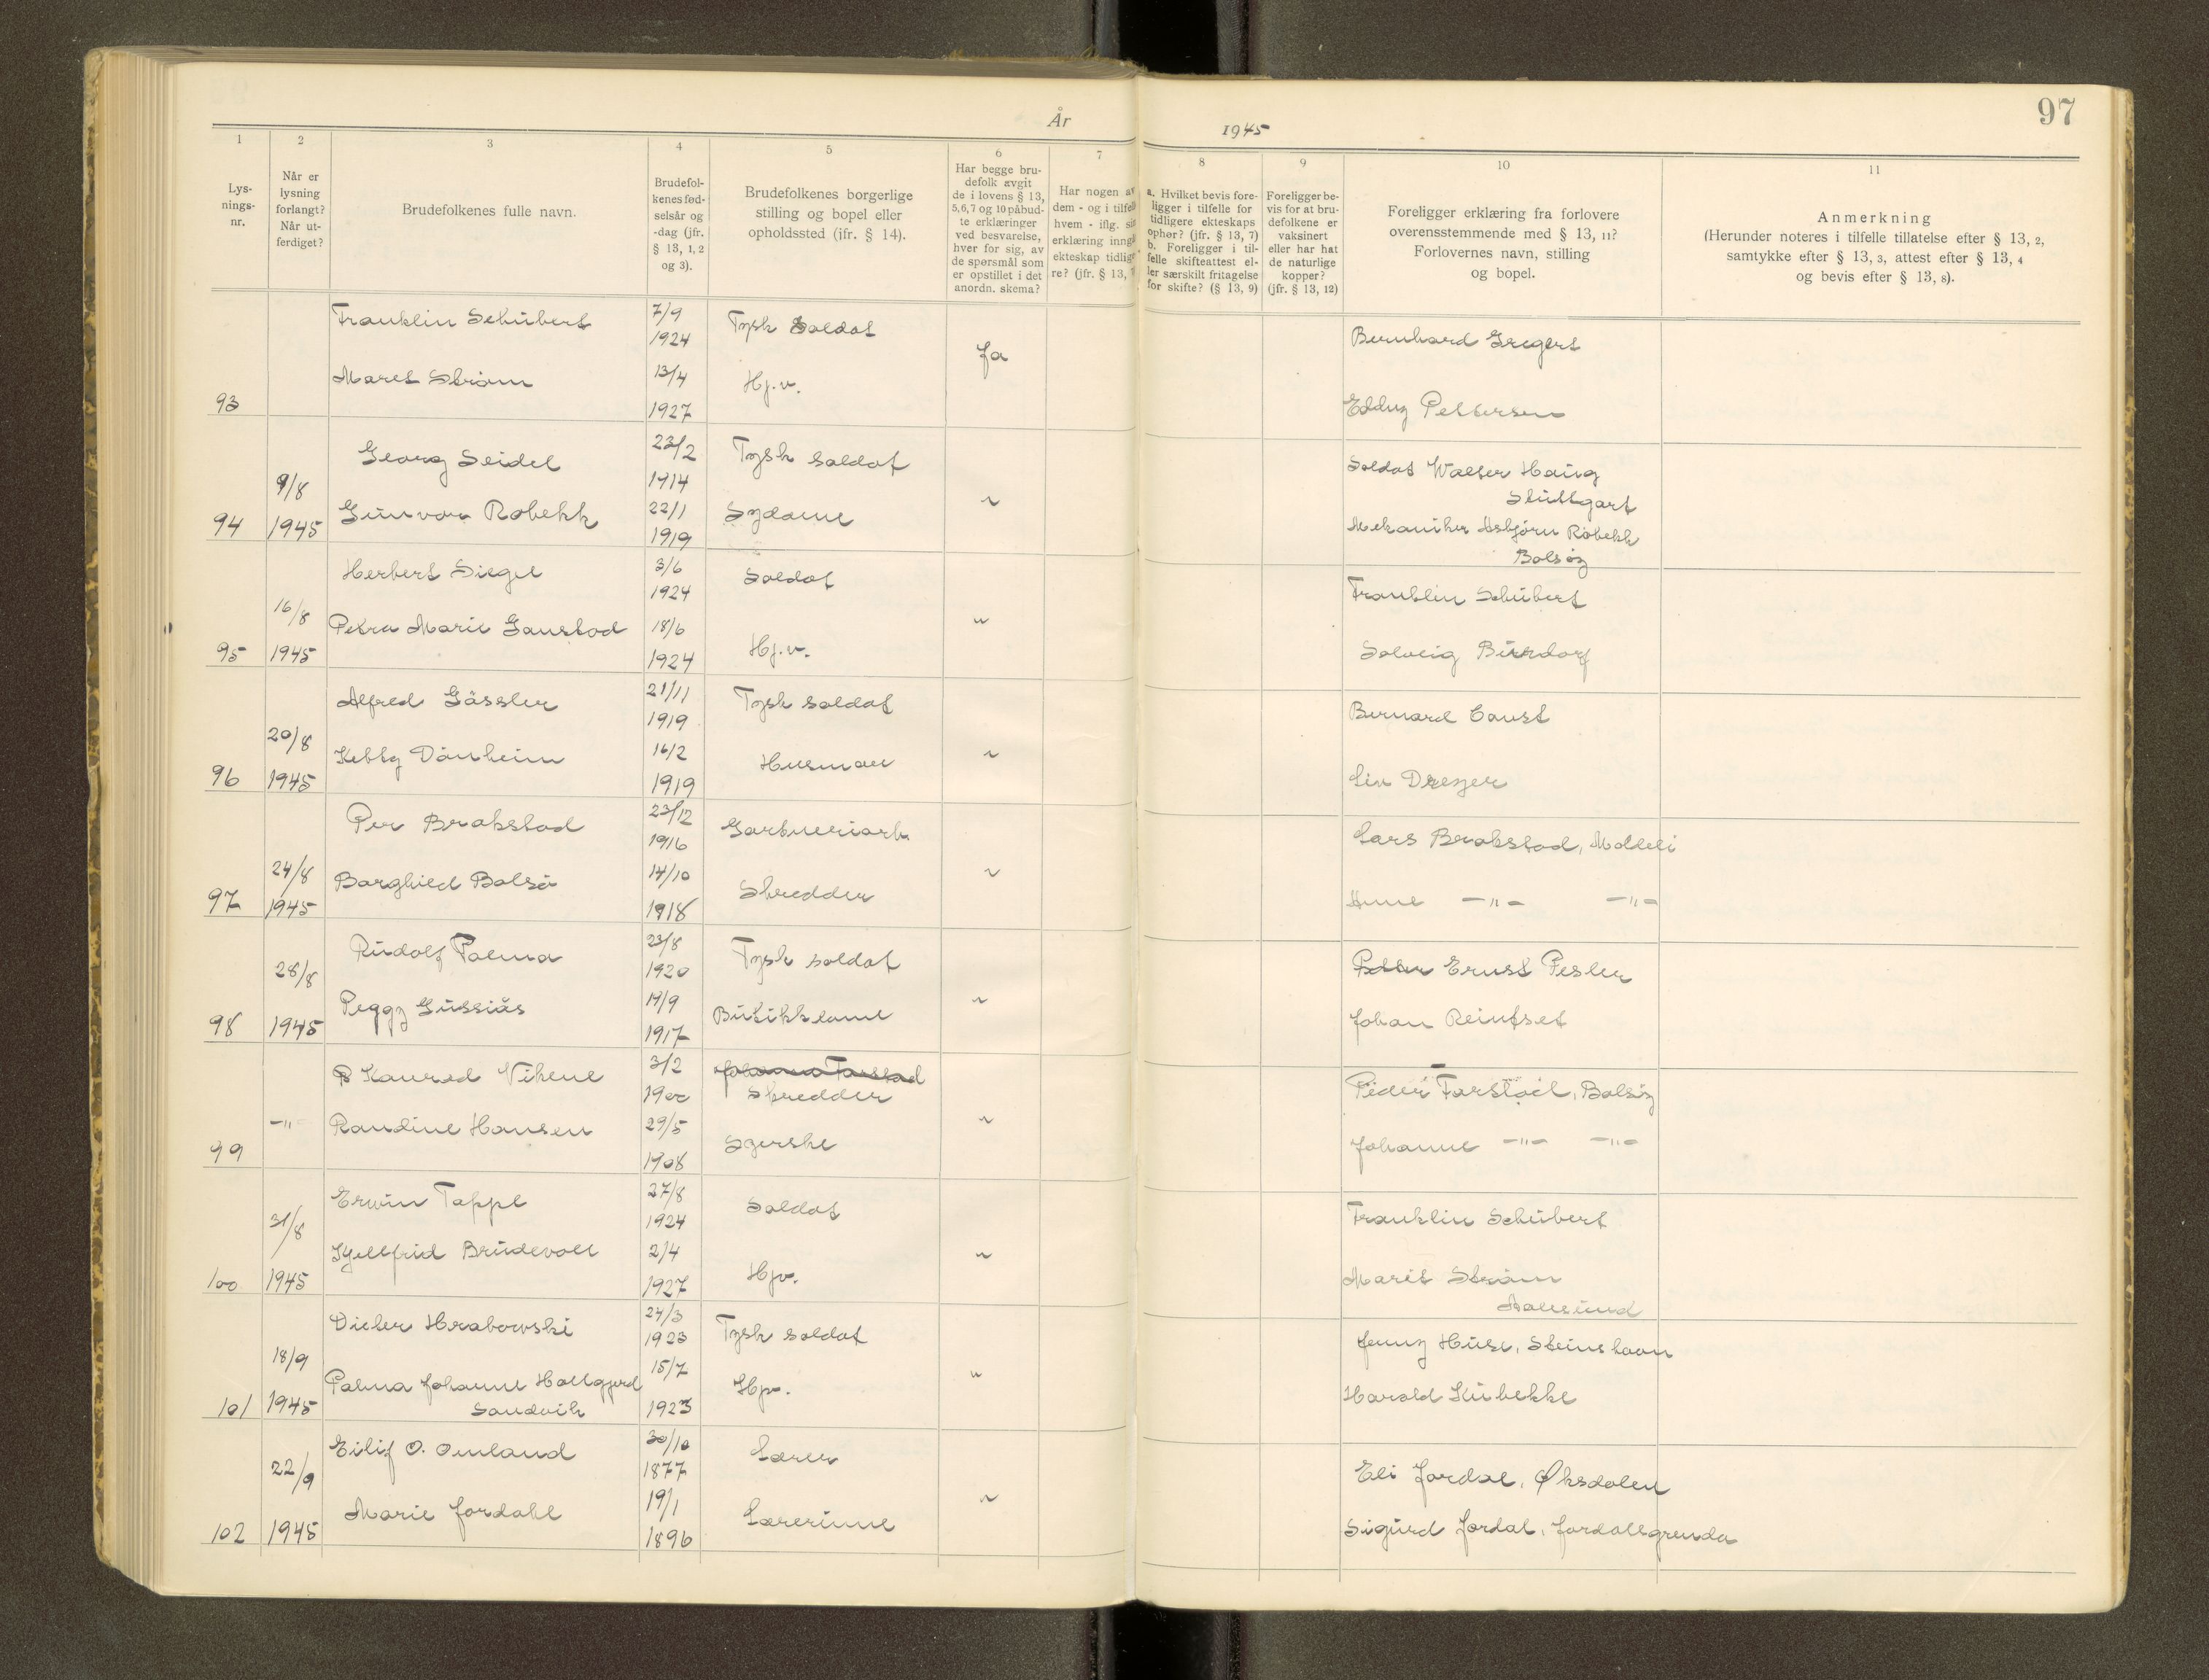 97
År 1945
1 2 3 4 5 6 7 8 9 10 11
Lys-
nings-
nr.
Når er
lysning
forlangt?
Når ut-
ferdiget?
Brudefolkenes fulle navn.
Brudefol-
kenes fød-
selsår og
-dag (jfr.
§ 13, 1, 2
og 3).
Brudefolkenes borgerlige
stilling og bopel eller
opholdssted (jfr. § 14).
Har begge bru-
defolk avgit
de i lovens § 13,
5,6,7 og 10 påbud-
te erklæringer
ved besvarelse,
hver for sig, av
de spørsmål som
er opstillet i det
anordn. skema?
Har nogen av
dem - og i tilfelle
hvem - iflg. sin
erklæring inngå
ekteskap tidlige
re? (jfr. § 13, 7
a. Hvilket bevis fore-
ligger i tilfelle for
tidligere ekteskaps
ophør? (jfr. § 13, 7)
b. Foreligger i til-
felle skifteattest el-
ler særskilt fritagelse
for skifte? (§ 13, 9)
Foreligger be-
vis for at bru-
defolkene er
vaksinert
eller har hat
de naturlige
kopper?
(jfr. § 13, 12)
Foreligger erklæring fra forlovere
overensstemmende med § 13, 11?
Forlovernes navn, stilling
og bopel.
Anmerkning
(Herunder noteres i tilfelle tillatelse efter § 13, 2,
samtykke efter § 13, 3, attest efter § 13, 4
og bevis efter § 13, 8).
Franklin Schübert 7/9 Tysk Soldat Bernhard Gregert
1924 Ja
Maret Strøm 13/4 Hj.v.
93 1927 Eddy Pettersen
Georg Seidel 23/2 Tysk soldat Soldat Walter Haug
9/8 1914 " Stuttgart
94 1945 Gunvor Røbekk 22/1 Sydame Mekaniker Asbjørn Røbekk
1919 Bolsøy
Herbert Siegel 3/6 Soldat Franklin Schübert
16/8 1924 "
Petra Marie Gaustad 18/6 Hj.v. Solveig Burdorf
95 1945 1924
Alfred Gässler 21/11 Tysk soldat Bernard Caust
20/8 1919
Kebby Dånheim 16/2 Husmor " Liv Dreyer
96 1945 1919
Per Brakstad 23/12 Garveriarb. Lars Brakstad, Moldeli
24/8 1916
Borghild Bolsø 14/10 Skredder " Anne -"- -"-
97 1945 1918
Rudolf Palma 23/8 Tysk soldat Petter Ernst Pesler
28/8 1920
Peggy Gussiås 14/9 Butikkdame " Johan Reintset
98 1945 1917
P Konrad Vikene 3/2 Johanna Farstad Peder Farstad, Bolsøy
1900 Skredder
-"- Randine Hansen 29/5 Syerske " Johanne -"- -"-
99 1908
Erwin Tappe 27/8 Soldat Franklin Schübert
31/8 1924
Kjellfrid Brudevoll 2/4 Hjv. " Marit Strøm
100 1945 1927 Aalesund
Dieter Hrabowski 24/3 Tysk soldat Jenny Huse, Steinshavn
18/9 1923
Palma Johanne Hallgjerd 15/7 Hjv. " Harold Kubekke
101 1945 Sandvik 1923
Eilif O. Omland 30/10 Lærer Eli Jordal, Øksdalen
22/9 1877
Marie Jordahl 19/1 Lærerinne " Sigurd Jordal, Jordalsgrenda
102 1945 1896